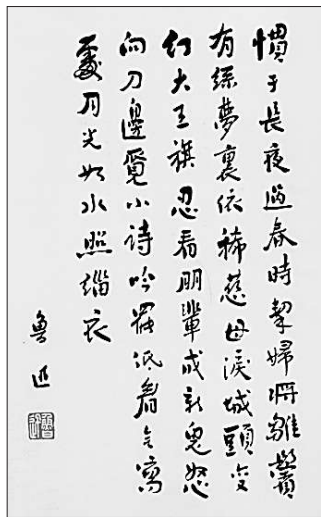 慣于長夜過春時挈婦將雛鬢
有絲夢裏依稀慈母淚城頭變
幻大王旗忍看朋輩成新鬼怒
向刀邊覓小詩吟罷低眉无寫
處月光如水照緇衣
魯迅